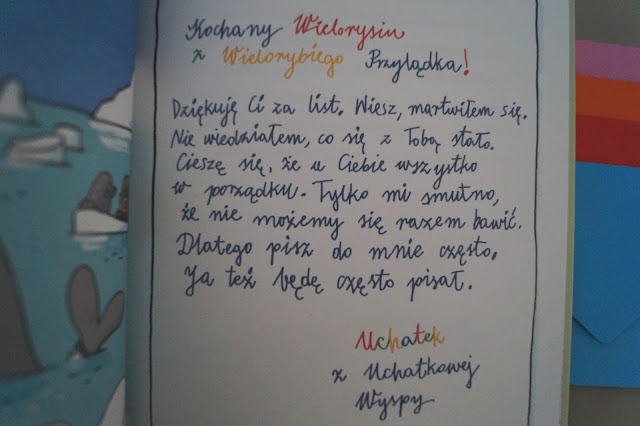 Kochany Wielorysiu
z Wielorybiego Przylądka!
Dziękuję Ci za list. Wiesz, martwiłem się.
Nie wiedziałem, co się z Tobą stało.
Cieszę się, że u Ciebie wszystko
w porządku. Tylko mi smutno,
że nie możemy się razem bawić.
Dlatego pisz do mnie często.
Ja też będę często pisał.
Uchatek
z Uchatkowej
Wyspy